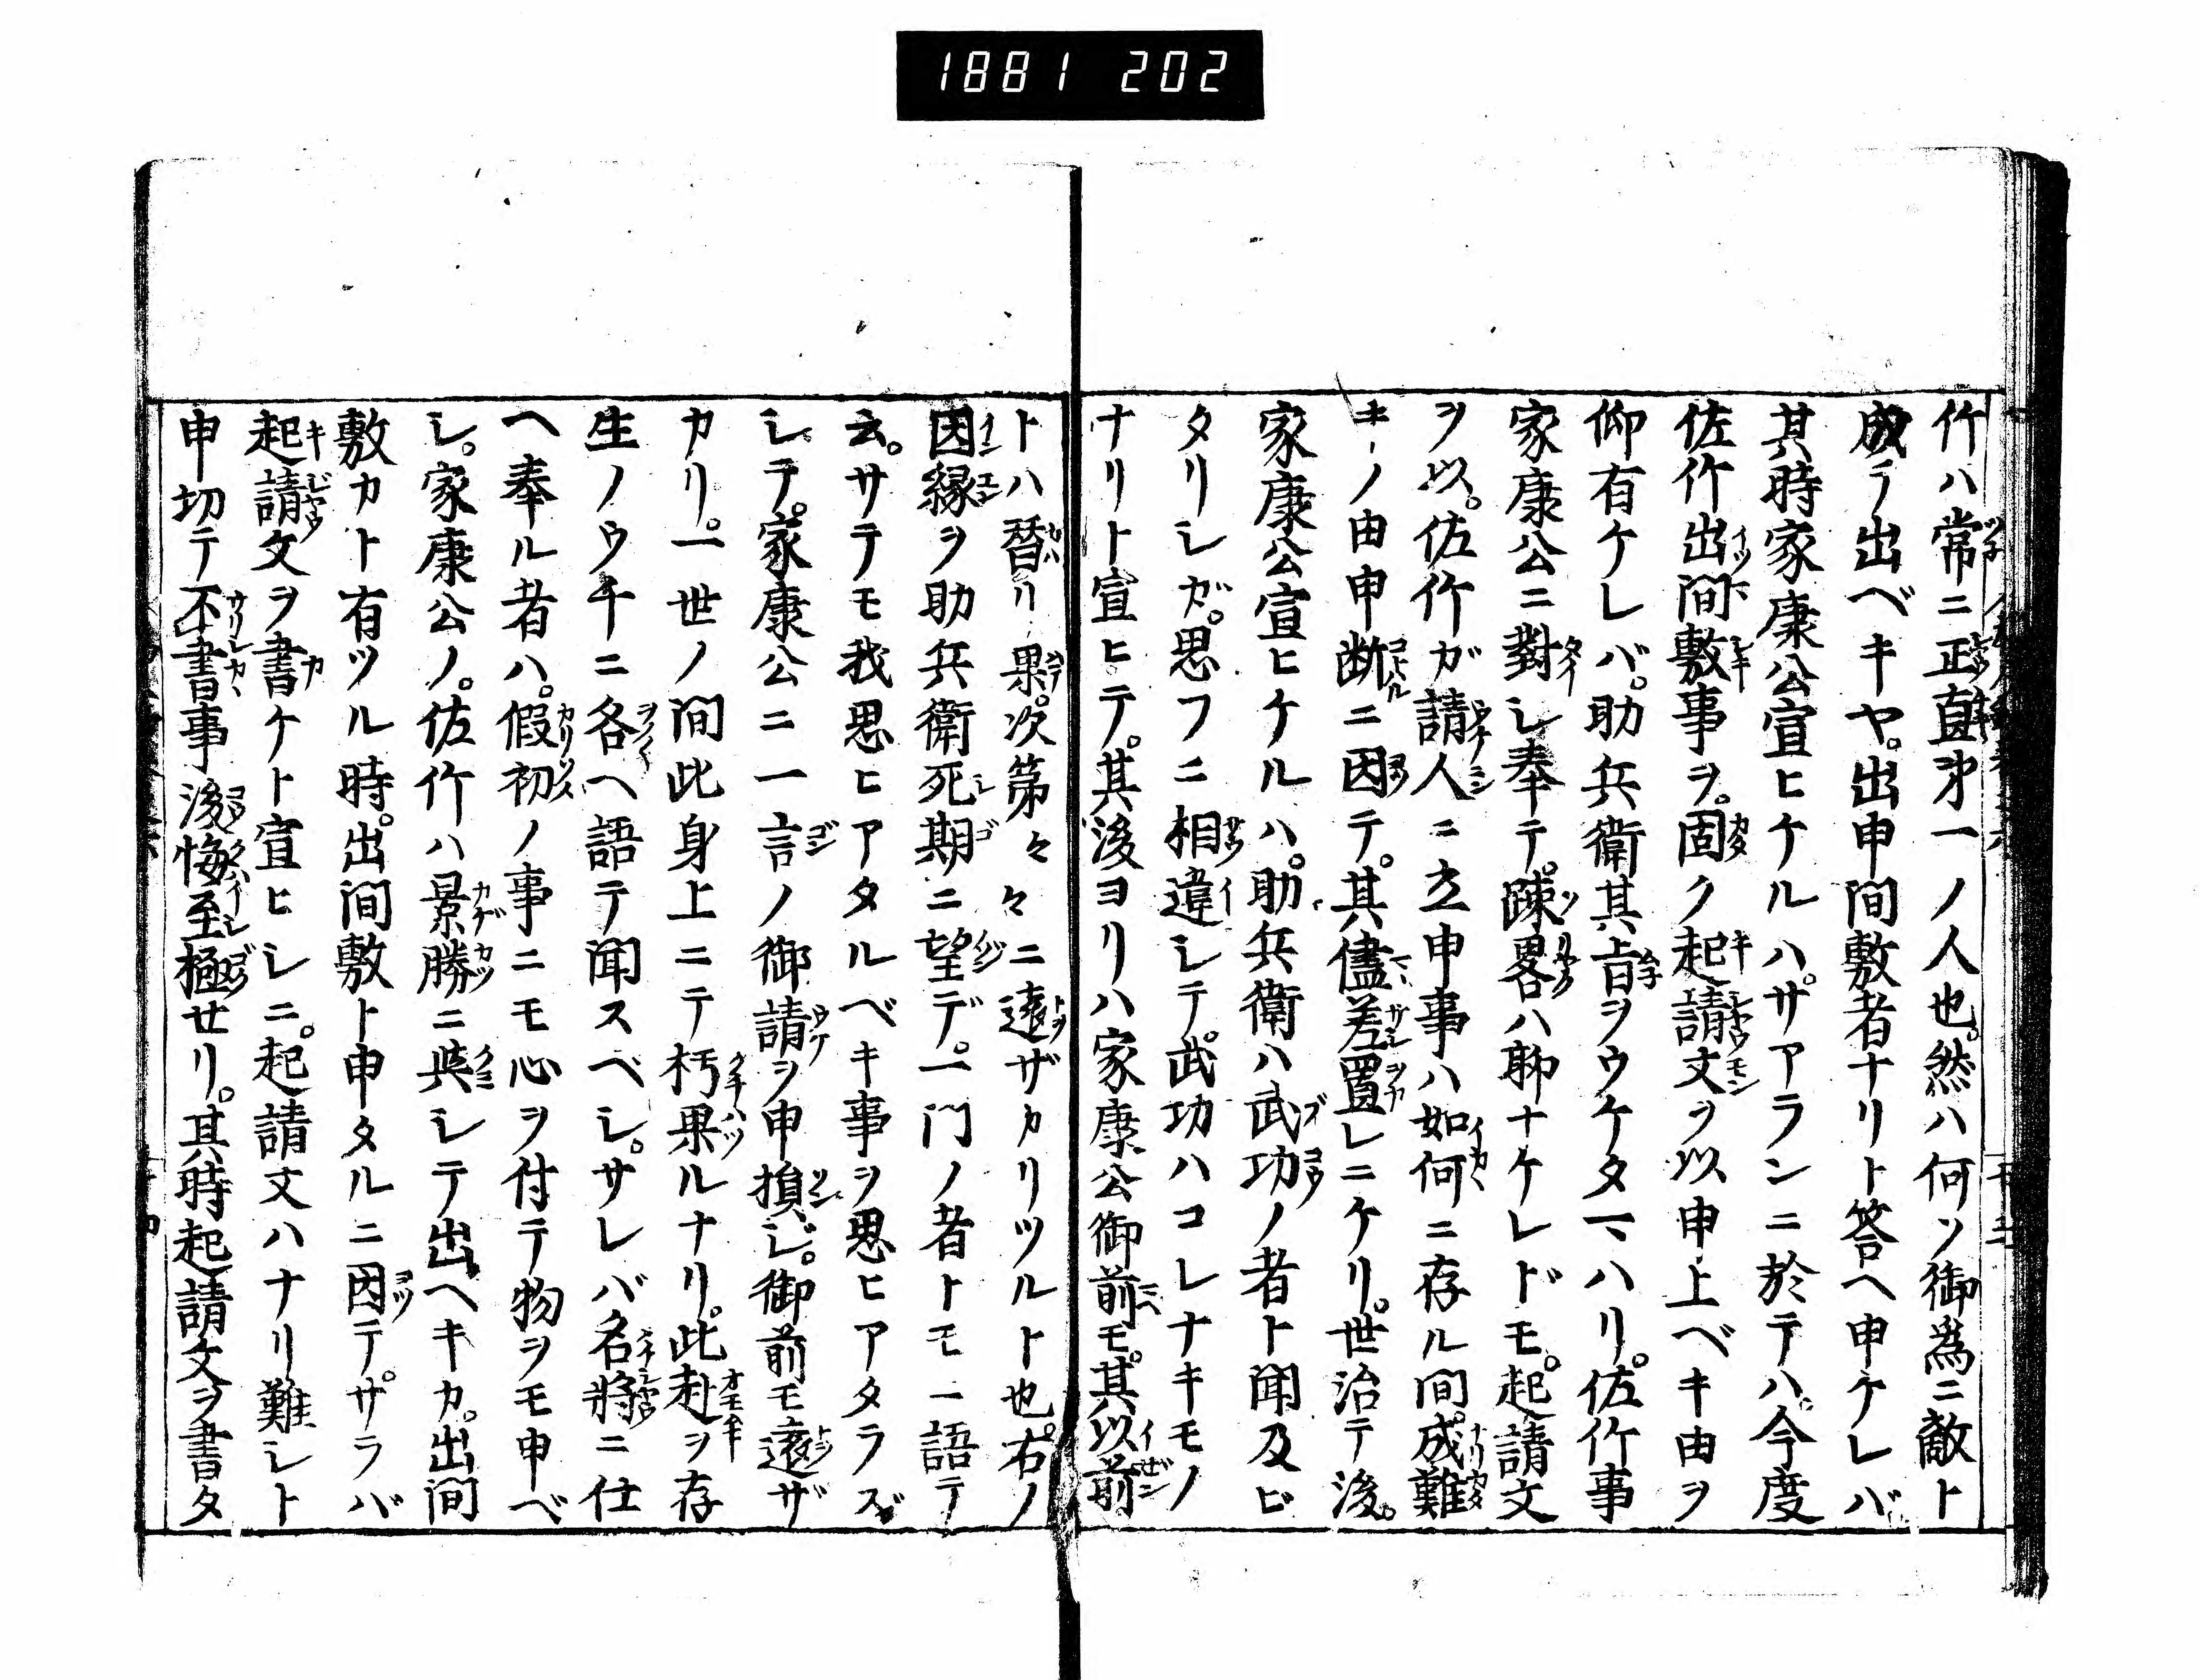 1881 202
竹ハ常ニ正直第一ノ人也。然ハ何ソ御為ニ敵ト
成テ出ベキヤ。出申間敷者ナリト答ヘ申ケレバ
其時家康公宣ヒケルハ。サアランニ於テハ。今度
佐竹出間敷事ヲ。固ク起請文ヲ以申上ベキ由ヲ
仰有ケレバ。助兵衛其旨ヲウケタマハリ。佐竹事
家康公ニ對シ奉テ。疎畧ハ聊ナケレドモ。起請文
ヲ以。佐竹ガ請人ニ立申事ハ如何ニ存ル間。成難
キノ由申断ニ因テ。其儘差置レニケリ。世治テ後。
家康公宣ヒケルハ。助兵衛ハ武功ノ者ト聞及ビ
タリシガ。思フニ相違シテ。武功ハコレナキモノ
ナリト宣ヒテ。其後ヨリハ家康公御前モ。其以前
トハ替リ果。次第々々ニ遠ザカリツルト也。右ノ
因縁ヲ助兵衛死期ニ望デ。一門ノ者トモニ語テ
云。サテモ我思ヒアタルベキ事ヲ思ヒアタラズ
シテ。家康公ニ一言ノ御請ヲ申損ジ。御前モ遠ザ
カリ。一世ノ間此身上ニテ朽果ルナリ。此赴ヲ存
生ノウチニ各ヘ語テ聞スベシ。サレバ名将ニ仕
ヘ奉ル者ハ。假初ノ事ニモ心ヲ付テ物ヲモ申ベ
シ。家康公ノ。佐竹ハ景勝ニ與シテ出ヘキカ。出間
敷カト有ツル時。出間敷ト申タルニ因テ。サラバ
起請文ヲ書ケト宣ヒシニ。起請文ハナリ難シト
申切テ不書事後悔至極セリ。其時起請文ヲ書タ